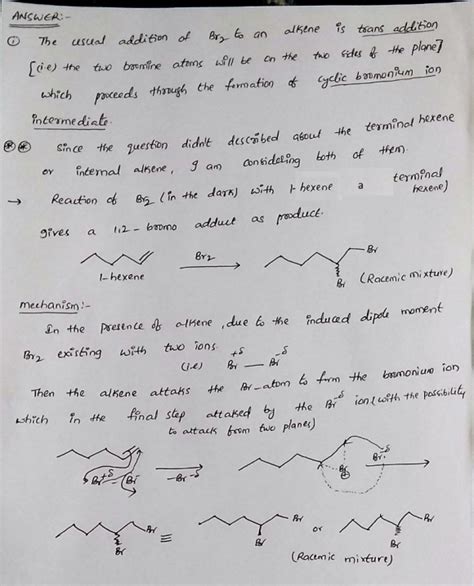 ANSWER:-
① The usual addition of Br2 to an alkene is trans addition
[(i.e) the two bromine atoms will be on the two sides of the plane]
which proceeds through the formation of cyclic bromonium ion
intermediate.
** Since the question didn't described about the terminal hexene
or internal alkene, I am considering both of them.
→ Reaction of Br2 (in the dark) with 1-hexene a terminal
hexene)
gives a 1,2-bromo adduct as product.
Br2
Br
1-hexene
Br (Racemic mixture)
mechanism:-
In the presence of alkene, due to the induced dipole moment
Br2 existing with two ions.
(i.e) Br+δ — Br-δ
Then the alkene attaks the Br-atom to form the bromonium ion
which in the final step attaked by the Br-δ ion (with the possibility
to attack from two planes)
Br+δ - Br-δ
-Br-δ
Br ⊕
Br-δ
Br
Br
≡
Br
Br
or
Br
Br
(Racemic mixture)